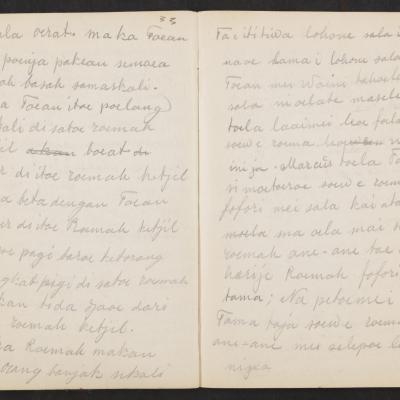 33
ala verat maka Toean
poenja pakean semoea
basah samaskali.
a Toean itoe poelang
kali di satoe roemah
kitjil akan boeat di
r di itoe roemah ketjil
a beta dengan Toean
r di itoe Roemah kitjil
oe pagi baroe kotorang
gkat pigi di satoe roemah
kan tida djaoe dari
roemah ketjil.
a Roemah makan
orang banjak sekali
Tacititiwa lohone sala i
naoe hama i lohou sala
Toean mei Waini
sala
toela laaimei leoe
soewe roema
nija. Marcus toela Toean
si matoeroe soewe roema
fofori mei sala kai ata
moela ma oela mai
roemah ane-ane tae
harije Roemah fofori
tama; Na peloemei
Tama taja soewe roema
ane-ane mei selepoe
nijea